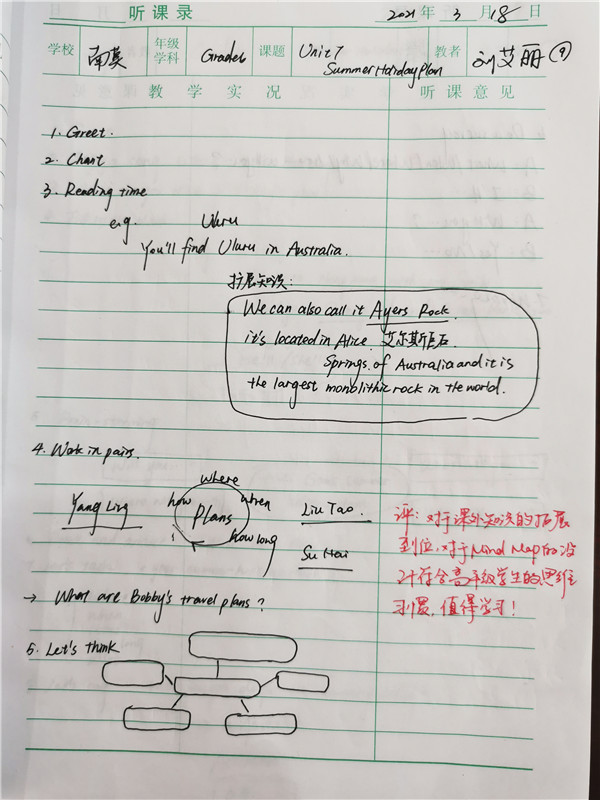 听课录 2021年 3月18日
学校 南莫 年级学科 Grade6 课题 Unit 7 Summer Holiday Plan 教者 刘艾丽 ⑨
教学实况 听课意见
1. Greet.
2. Chant
3. Reading time
e.g. Uluru
You'll find Uluru in Australia.
扩展知识:
We can also call it Ayers Rock.
it's located in Alice 艾尔斯巨石
Springs of Australia and it is
the largest monolithic rock in the world.
4. Work in pairs.
where
Yang Ling how Plans when Liu Tao
how long
Su Hai
→ What are Bobby's travel plans?
5. Let's think
评:对于课外知识的拓展
到位,对于Mind Map的设
计符合高年级学生的思维
习惯,值得学习!